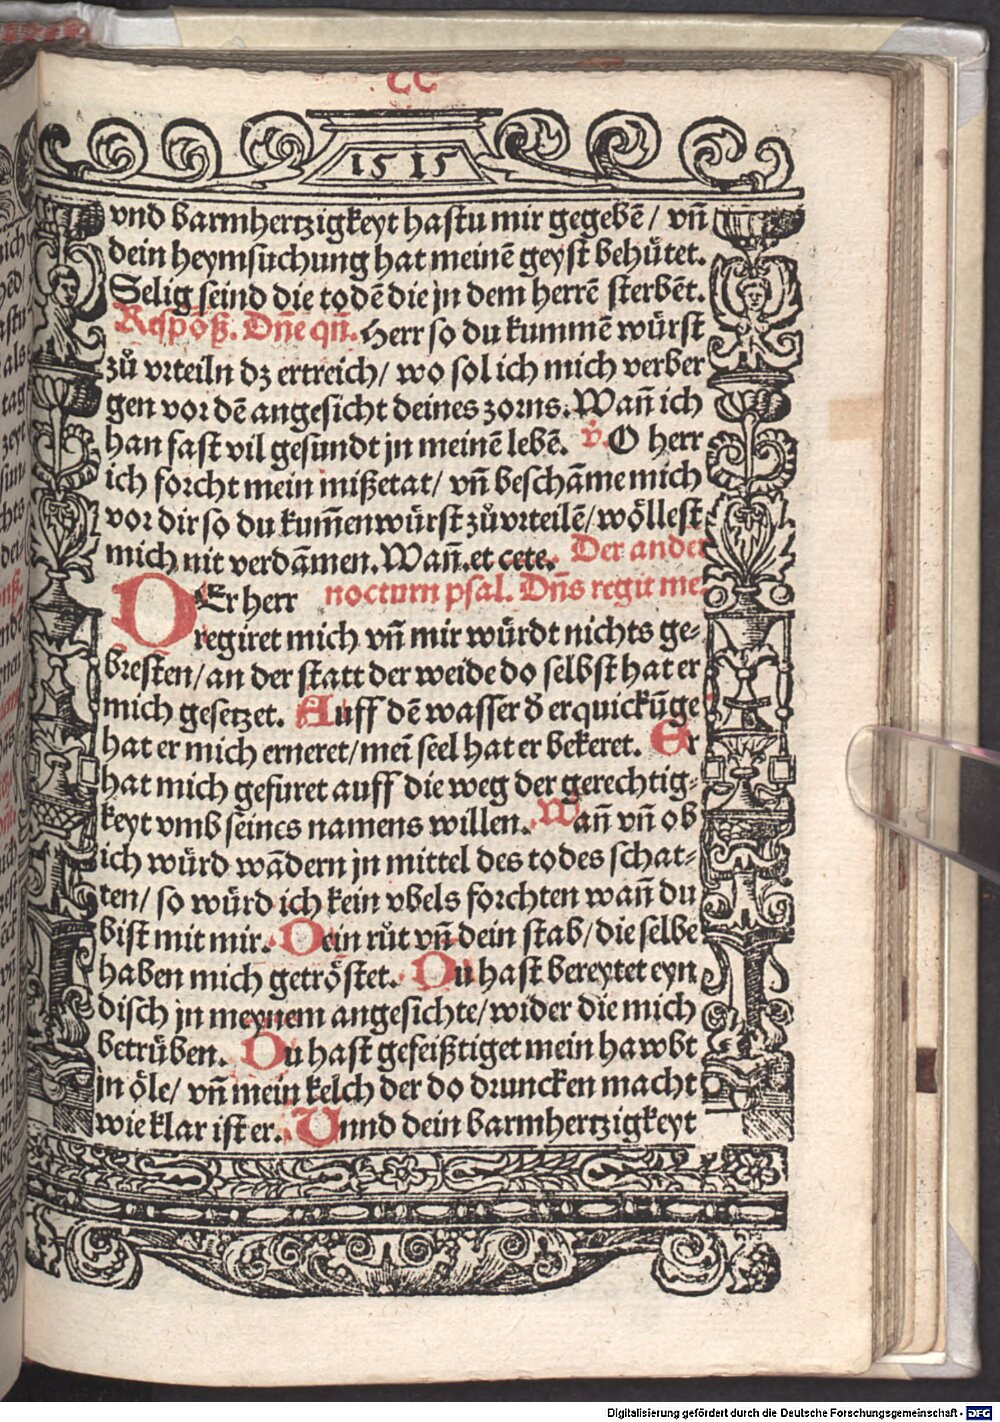 CC
1515
vnd barmhertzigkeyt hastu mir gegebē/ vn̄
dein heymsuchung hat meinē geyst behuͤtet.
Selig seind die todē die jn dem herrē sterbēt.
Respōß. Dn̄e qn̄. Herr so du kummē wuͤrst
zuͦ vrteiln dz ertreich/ wo sol ich mich verber
gen vor dē angesicht deines zorns. Wan̄ ich
han fast vil gesundt jn meinē lebē. v̊. O herr
ich forcht mein mißetat/ vn̄ beschāme mich
vor dir so du kum̄en wuͤrst zuͦ vrteilē/ woͤllest
mich nit verdāmen. Wan̄. et cete. Der ander
DEr herr nocturn psal. Dn̄s regit me.
regiret mich vn̄ mir wuͤrdt nichts ge⸗
bresten/ an der statt der weide do selbst hat er
mich gesetzet. Auff dē wasser d̄ erquickūge
hat er mich erneret/ mei̅ seel hat er bekeret. Er
hat mich gefuret auff die weg der gerechtig⸗
keyt vmb seines namens willen. Wan̄ vn̄ ob
ich wuͤrd wādern jn mittel des todes schat⸗
ten/ so wuͤrd ich kein vbels forchten wan̄ du
bist mit mir. Dein ruͦt vn̄ dein stab/ die selbe
haben mich getroͤstet. Du hast bereytet eyn
disch jn meynem angesichte/ wider die mich
betruͤben. Du hast gefeißtiget mein hawbt
jn oͤle/ vn̄ mein kelch der do druncken macht
wie klar ist er. Vnnd dein barmhertzigkeyt
Digitalisierung gefördert durch die Deutsche Forschungsgemeinschaft - DFG